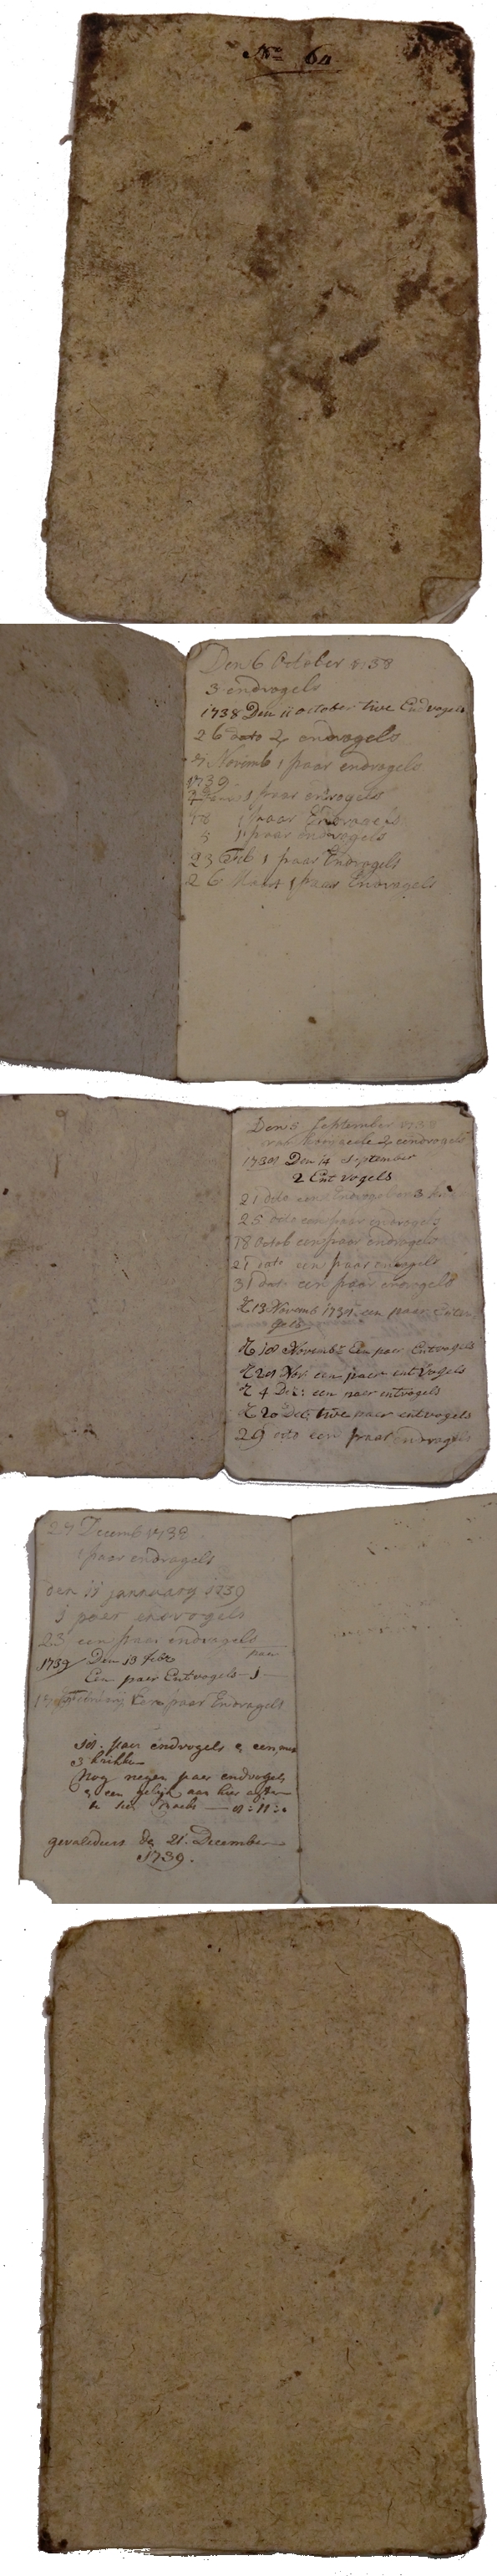 No 64
Den 6 October 1738
3 endvogels
1738 Den 11 october twe Endvogels
26 dato 2 endvogels
9 Novemb 1 paar endvogels
1739
1 paar endvogels
18 1 paar Endvogels
5 1 paar endvogels
23 Feb 1 paar Endvogels
26 Maert 1 paar Endvogels
Den 5 September 1738
2 eindvogels
1738 Den 14 September
2 Ent vogels
21 dito
25 dito een paar endvogels
18 Octob een paar endvogels
21 dato een paar endvogels
31 dato een paar endvogels
13 Novemb 1738 een paer Entvo
gels
18 Novemb: Een paer Entvogels
29 Nov: een paer entvogels
4 Dec: een paer entvogels
20 Dec: twe paer entvogels
29 dito een paar endvogels
29 Decemb 1738
1 paar endvogels
den 11 jannuary 1739
1 paer endvogels
23 een paar endvogels
1739 Den 13 febr paer
Een paer Entvogels - 1
Een paar Endvogels
paer endvogels
3
Nog negen paer endvogels
een gelijk aan hier agter
te sien
den 21 December
1739.